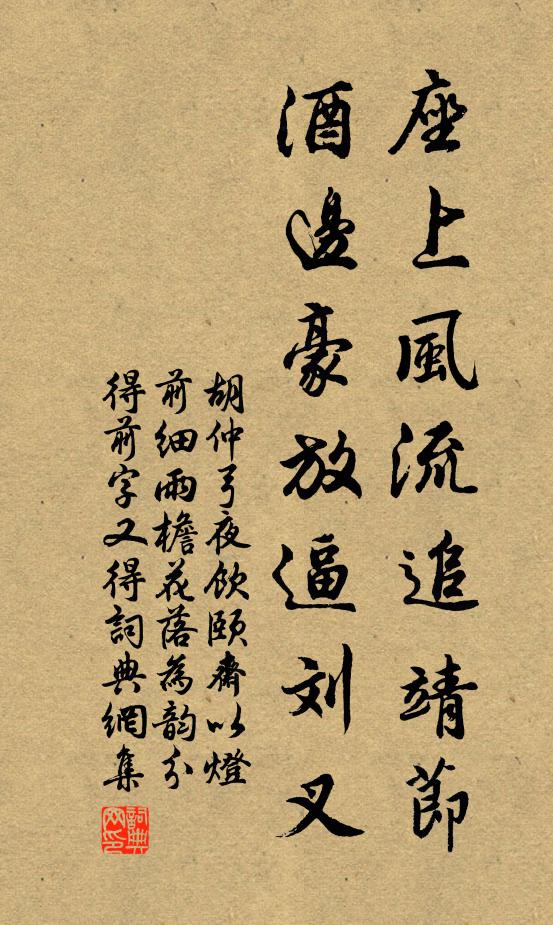 座上風流追靖節
酒邊豪放逼刘叉
胡仲弓夜飲頤齋以燈
前細雨檐花落為韵分
得前字又得詞典網集
詞典网印